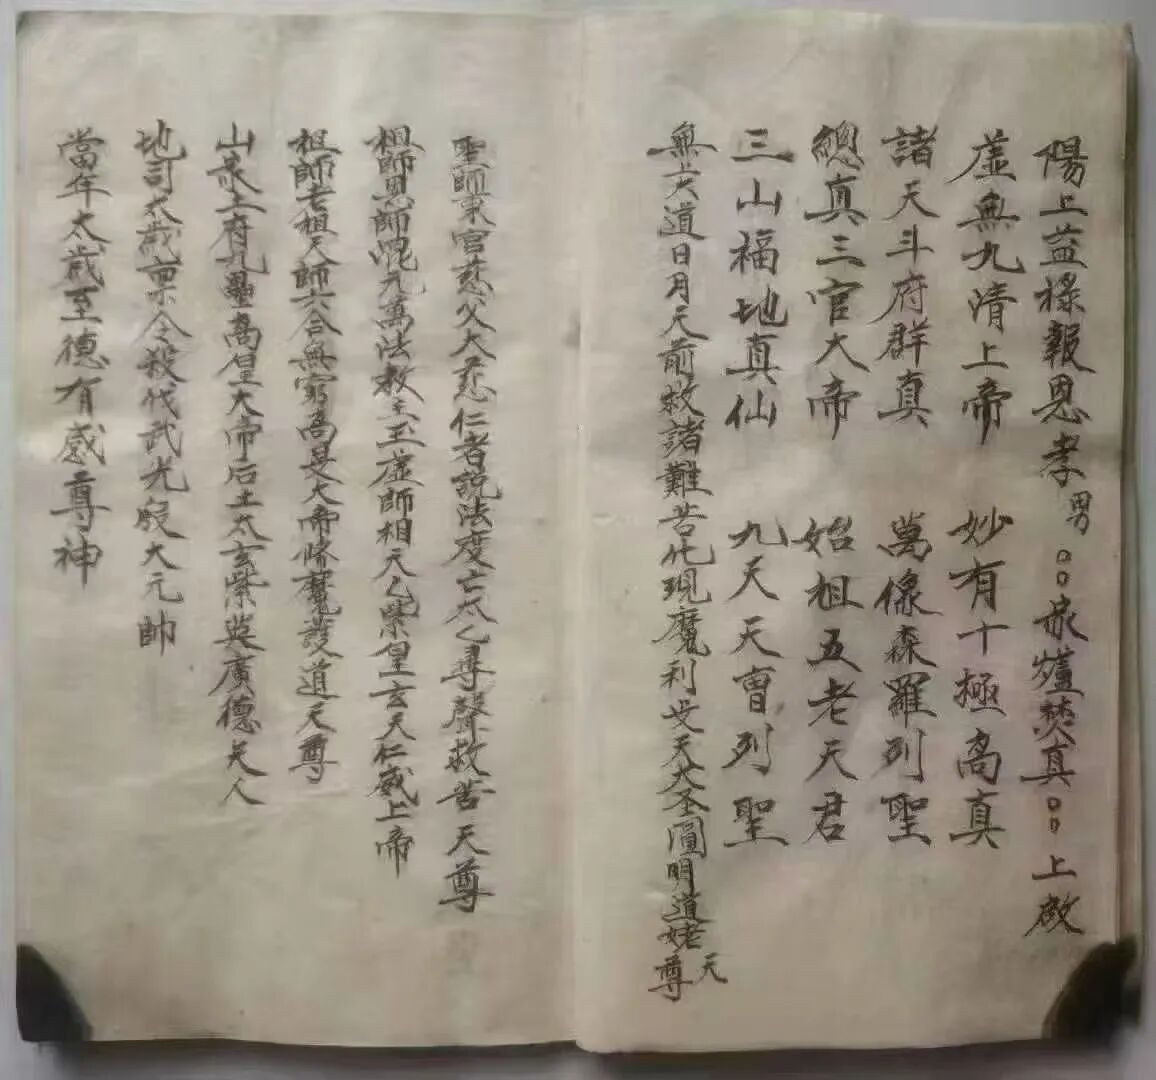 陽上益祿報恩孝男〇〇家爐焚真〇〇上啟
虛無九清上帝　妙有十極高真
諸天斗府群真　萬像森羅列聖
總真三官大帝　始祖五老天君
三山福地真仙　九天天曹列聖
無上大道日月天前救諸難苦化現魔利支天大圣圓明道姥天尊
聖師東宮慈父大慈仁者說法度亡太乙尋聲救苦天尊
祖師恩師混元萬法教主玉虛師相天乙紫皇玄天仁威上帝
祖師老祖天師六合無窮高是大帝降魔護道天尊
山泉土府九壘高皇大帝后土太玄紫英廣德夫人
地司太歲稟令殺伐武光殷大元帥
當年太歲至德有感尊神